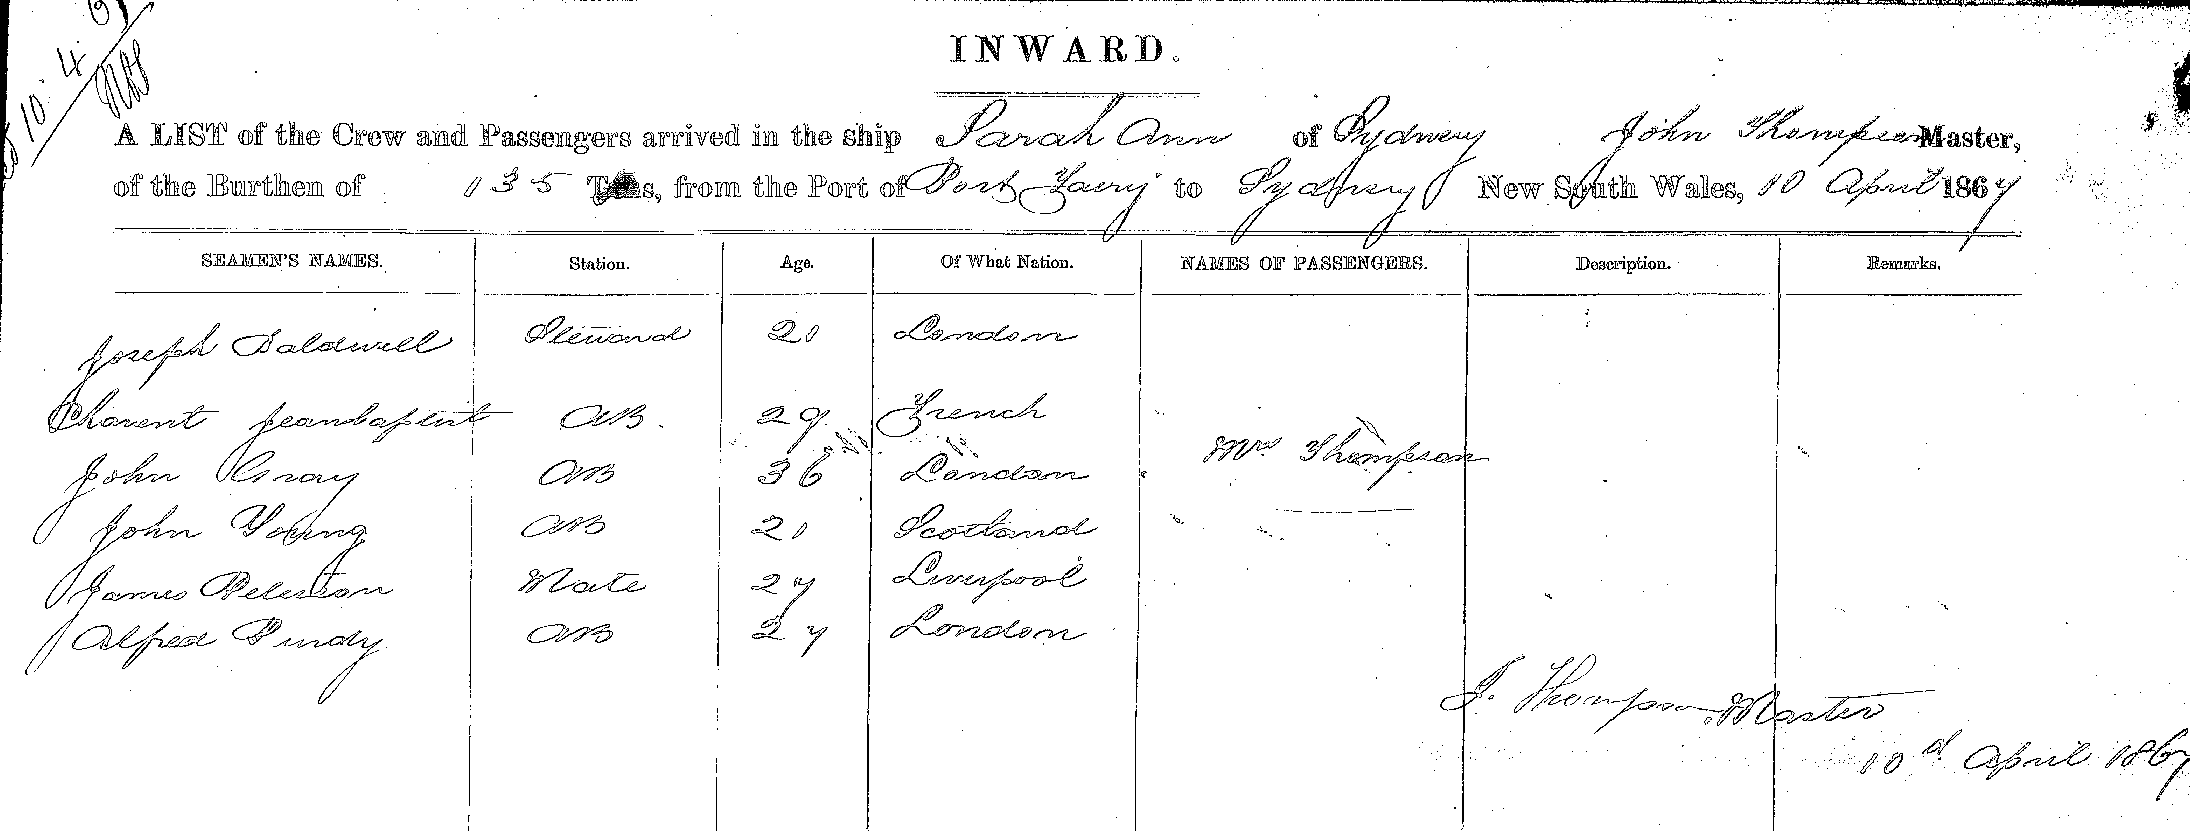 10.4.6
INWARD.
A LIST of the Crew and Passengers arrived in the ship Sarah Ann of Sydney John Thompson Master,
of the Burthen of 135 Tons, from the Port of Port Faery to Sydney New South Wales, 10 April 1867
SEAMEN'S NAMES. Station. Age. Of What Nation. NAMES OF PASSENGERS. Description. Remarks.
Joseph Baldwell Steward 20 London
Charent jeanbaptist AB. 29 French
Mrs Thompson
John Gray AB 36 London
John Young AB 20 Scotland
James Peterson Mate 27 Liverpool
Alfred Purdy AB 27 London
J. Thompson Master
10d April 1867